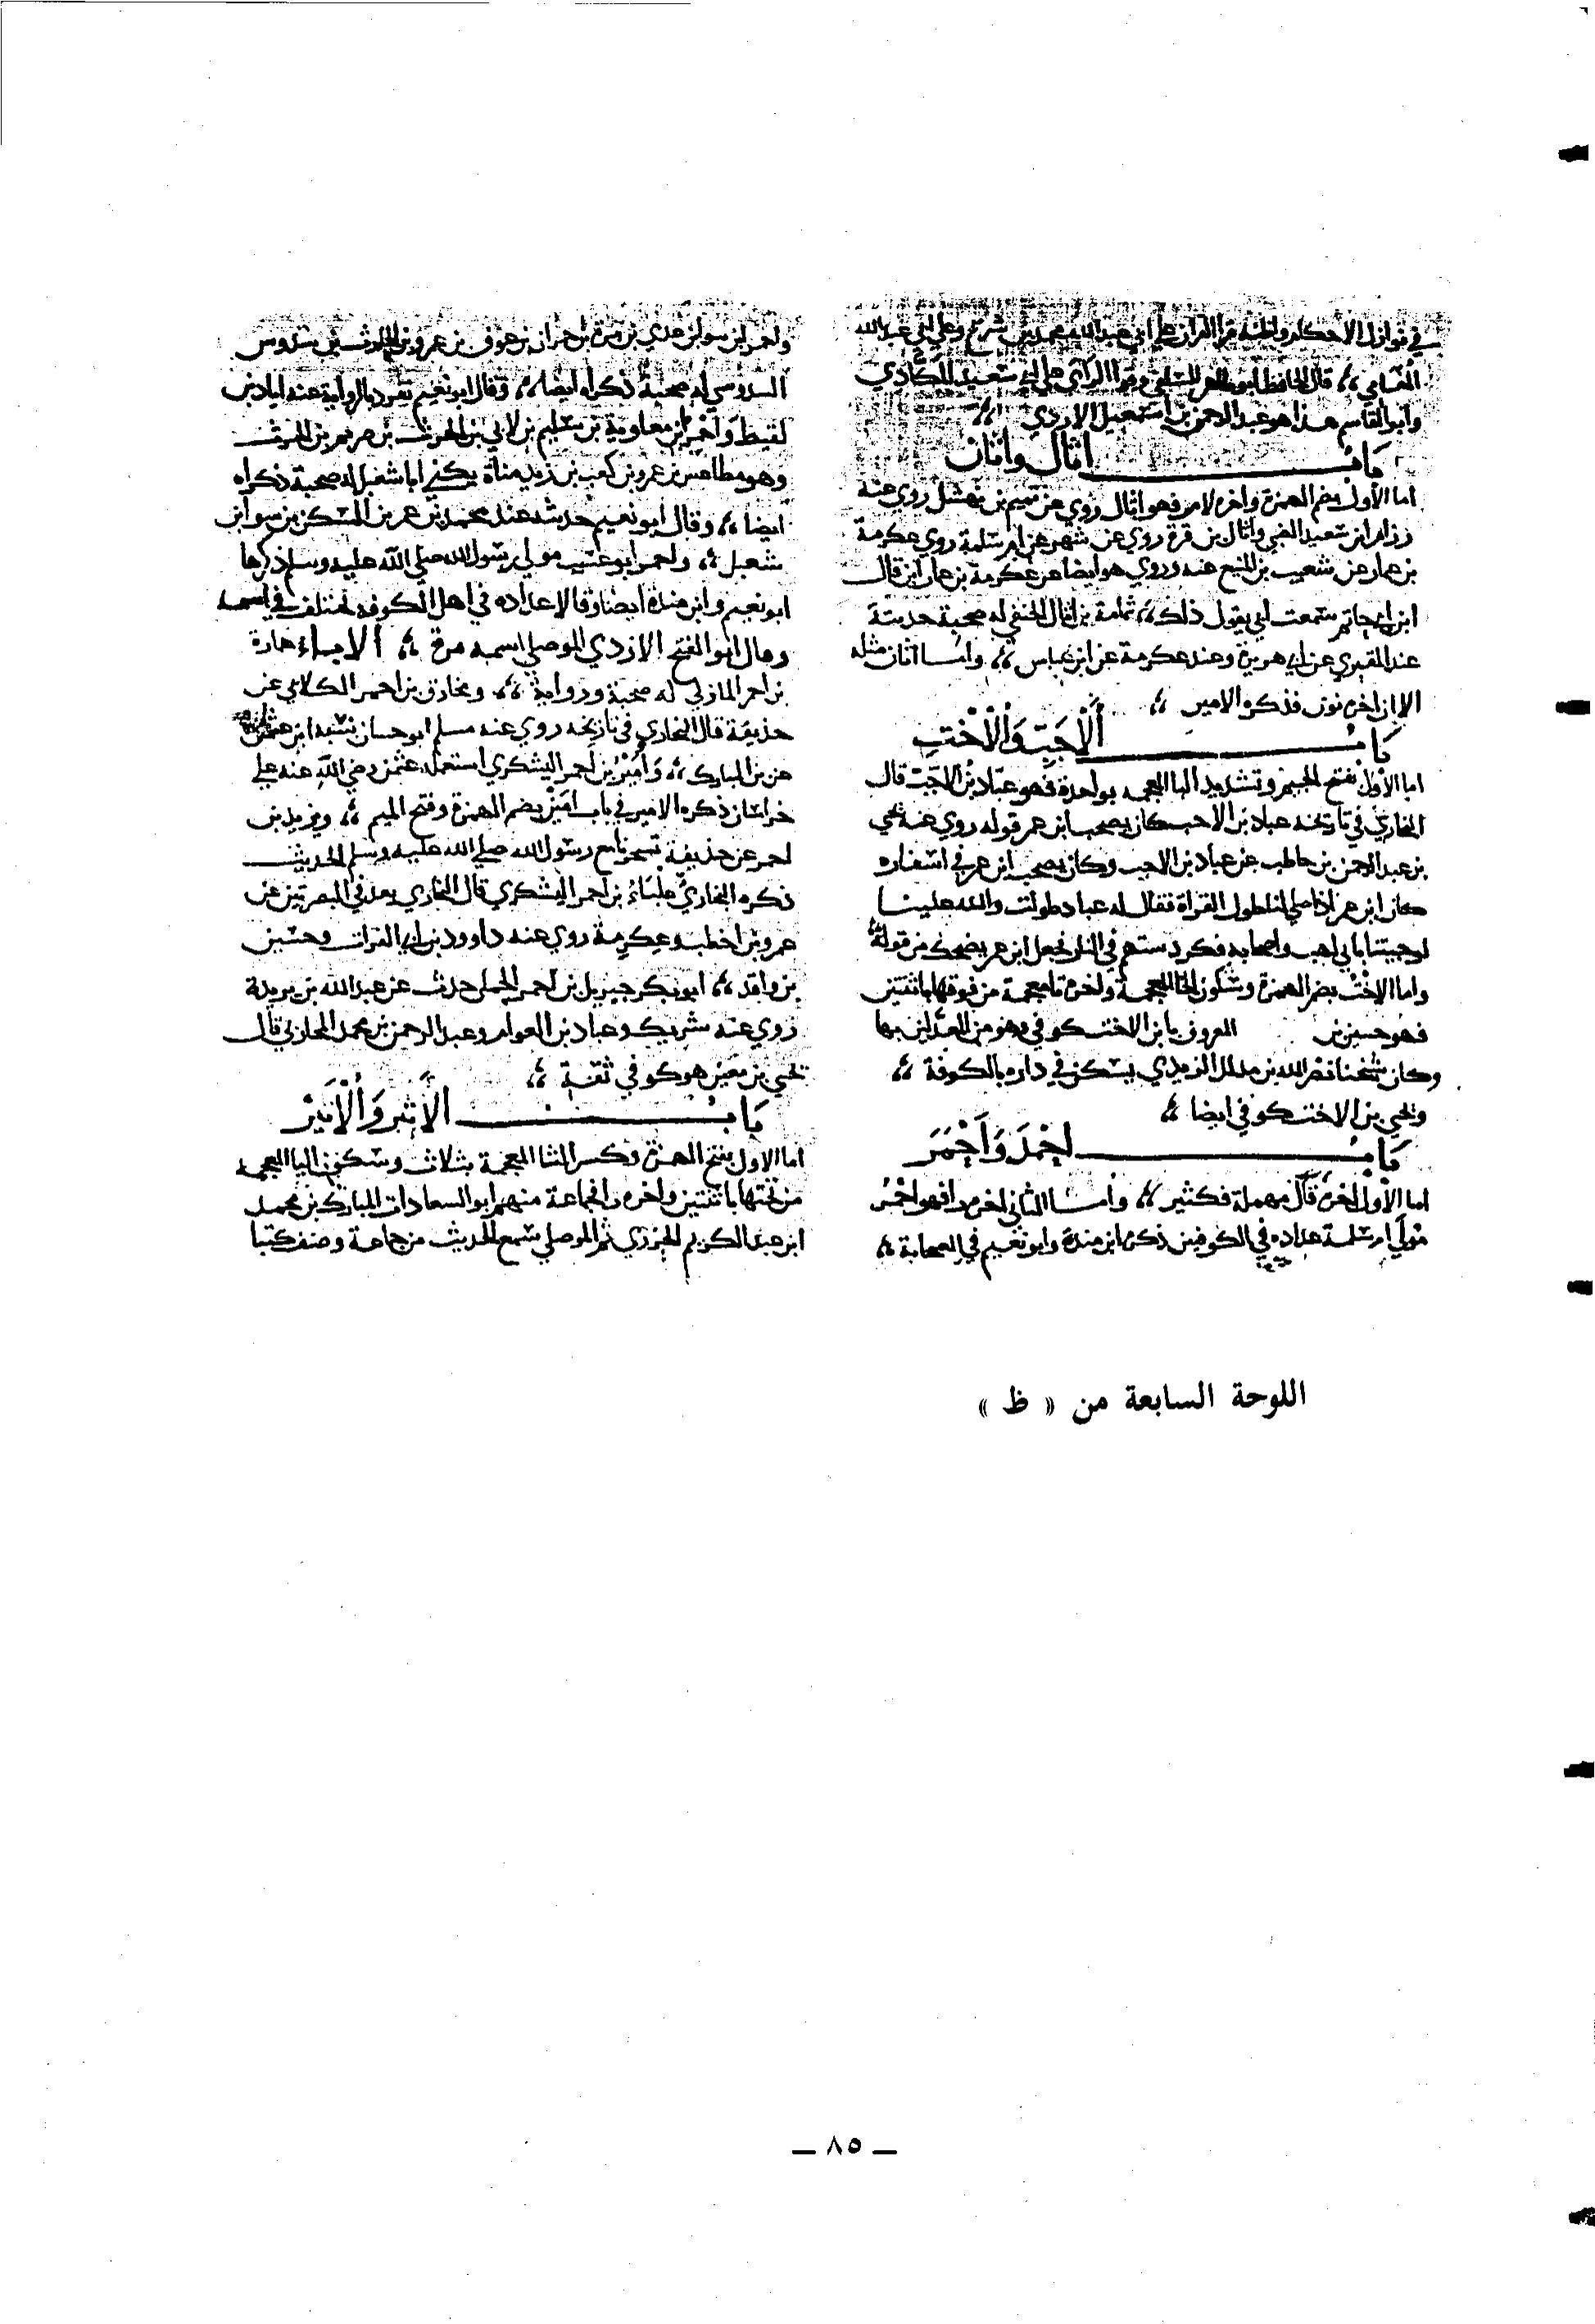 في نوازل الأحكام
وابو القاسم هذا هو عبد الرحمن بن اسمعيل الازدي
باب اثال واثان
اما الأول بضم الهمزة واخره لام فهو اثال روي عن تميم بن نهشل روي عنه
ابن سعيد الضبي واثال بن قرة روي عن شهر عن ام سلمة روي عكرمة
بن عمار عن شعيب بن عنه وروي هو ايضا عن عكرمة بن عمار ابن قال
ابن ابي حاتم سمعت ابي يقول ذلك ثمامة بن اثال الحنفي له صحبة حديثه
عند المقبري عن ابي هريرة وعند عكرمة عن ابن عباس وامـا اثان مثله
الا ان اخره نون فذكره الامير
باب الأجب والأخت
اما الأول بفتح الجيم وتشديد البا المعجمه بواحدة فهو عباد بن الأجب قال
البخاري في تاريخه عباد بن الاجب كان يصحب ابن عمر قوله روي عنه يحي
بن عبد الرحمن بن حاطب عن عباد بن الاجب وكان يصحب ابن عمر في اسفاره
كان ابن عمر اذا صلي لنا طول القراة فقال له عباد طولت والله علينا
فجعل ابن عمر يضحك من قوله
واما الاخت بضم الهمزة وسكون الخا المعجمة واخره تا معجمة من فوقها باثنتين
فهو حسين بن المعروف بابن الاخت كوفي وهو من
وكان شيخنا نصر الله بن الزيدي يسكن في داره بالكوفة
ويحيي بن الاخت كوفي ايضا
باب احمد وأحمر
اما الأول اخره دال مهملة فكثير وامـا الثاني اخره را فهو احمر
مولي ام سلمة عداده في الكوفيين ذكره ابن منده وابو نعيم في الصحابة
واحمر ابن سوا بن عدي بن مرة بن حمران بن عوف بن عمرو بن الحارث بن سدوس
السدوسي له صحبة ذكراه ايضا وقال ابو نعيم تفرد بالرواية عنه اياد بن
لقيط واحمر بن معاوية بن سليم بن لاي بن الحرث بن صريم بن الحرث
وهو مقاعس بن عمرو بن كعب بن زيد مناة يكني ابا شعبل له صحبة ذكراه
ايضا وقال ابو نعيم حديثه عند محمد بن عمر بن السكن بن سوا بن
شعبل واحمر ابو عسيب مولي رسول الله صلي الله عليه وسلم ذكرها
ابو نعيم وابن مندة ايضا وقالا عداده في اهل الكوفه مختلف في اسمه
وقال ابو الفتح الازدي الموصلي اسمه مرة الابـاء هارة
بن احمر المازني له صحبة ورواية ومخارق بن احمر الكلاعي عن
حذيفة قال البخاري في تاريخه روي عنه مسلم ابو حسان نسبه ابن
عن بن المبارك وأمير بن أحمر اليشكري استعمله عثمن رضي الله عنه علي
خراسان ذكره الامير في باب امير بضم الهمزة وفتح الميم ويزيد بن
احمر عن حذيفة تسحرنا مع رسول الله صلي الله عليه وسلم الحديث
ذكره البخاري علباء بن احمر اليشكري قال البخاري يعد في البصريين عن
عمرو بن اخطب وعكرمة روي عنه داوود بن ابي الفرات وحسين
بن واقد ابو بكر جبريل بن احمر الجملي حدث عن عبد الله بن بريدة
روي عنه شريك وعباد بن العوام وعبد الرحمن بن محمد المحاربي قال
يحيي بن معين هو كوفي ثقة
باب الأثير والأثير
اما الاول بفتح الهمزة وكسر الثا المعجمة بثلاث وسكون اليا المعجمه
من تحتها باثنتين واخره را فجماعة منهم ابو السعادات المبارك بن محمد
ابن عبد الكريم الجزري ثم الموصلي سمع الحديث من جماعة وصنف كتبا
اللوحة السابعة من « ظ »
— ٨٥ —